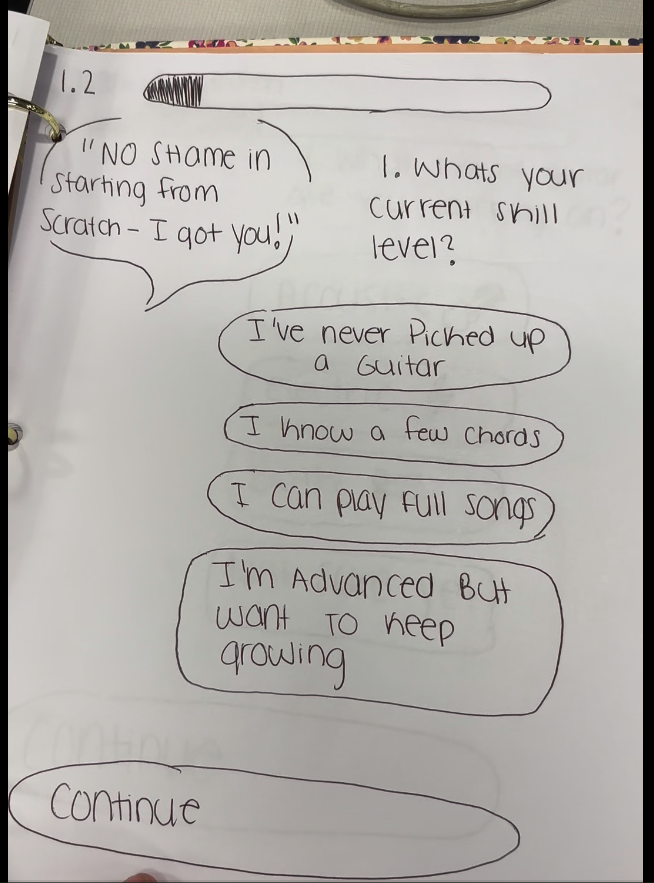 1.2
"NO SHame in
starting from
Scratch - I got you!"
1. Whats your
current skill
level?
I've never Picked up
a Guitar
I know a few chords
I can play full songs
I'm Advanced But
want To keep
growing
Continue